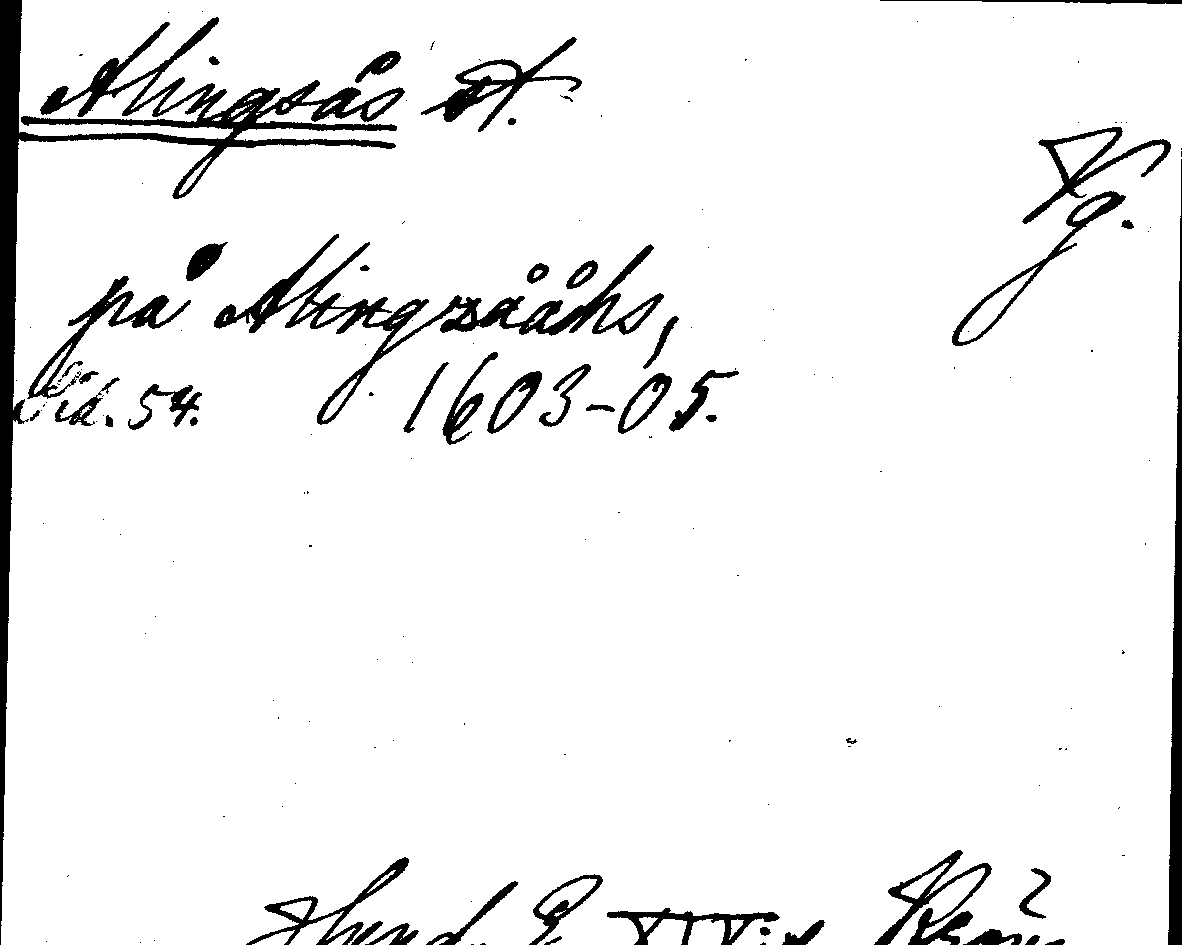 Alingsås st.
Vg.
på Alingzååhs,
Sid. 54. 1603-05.